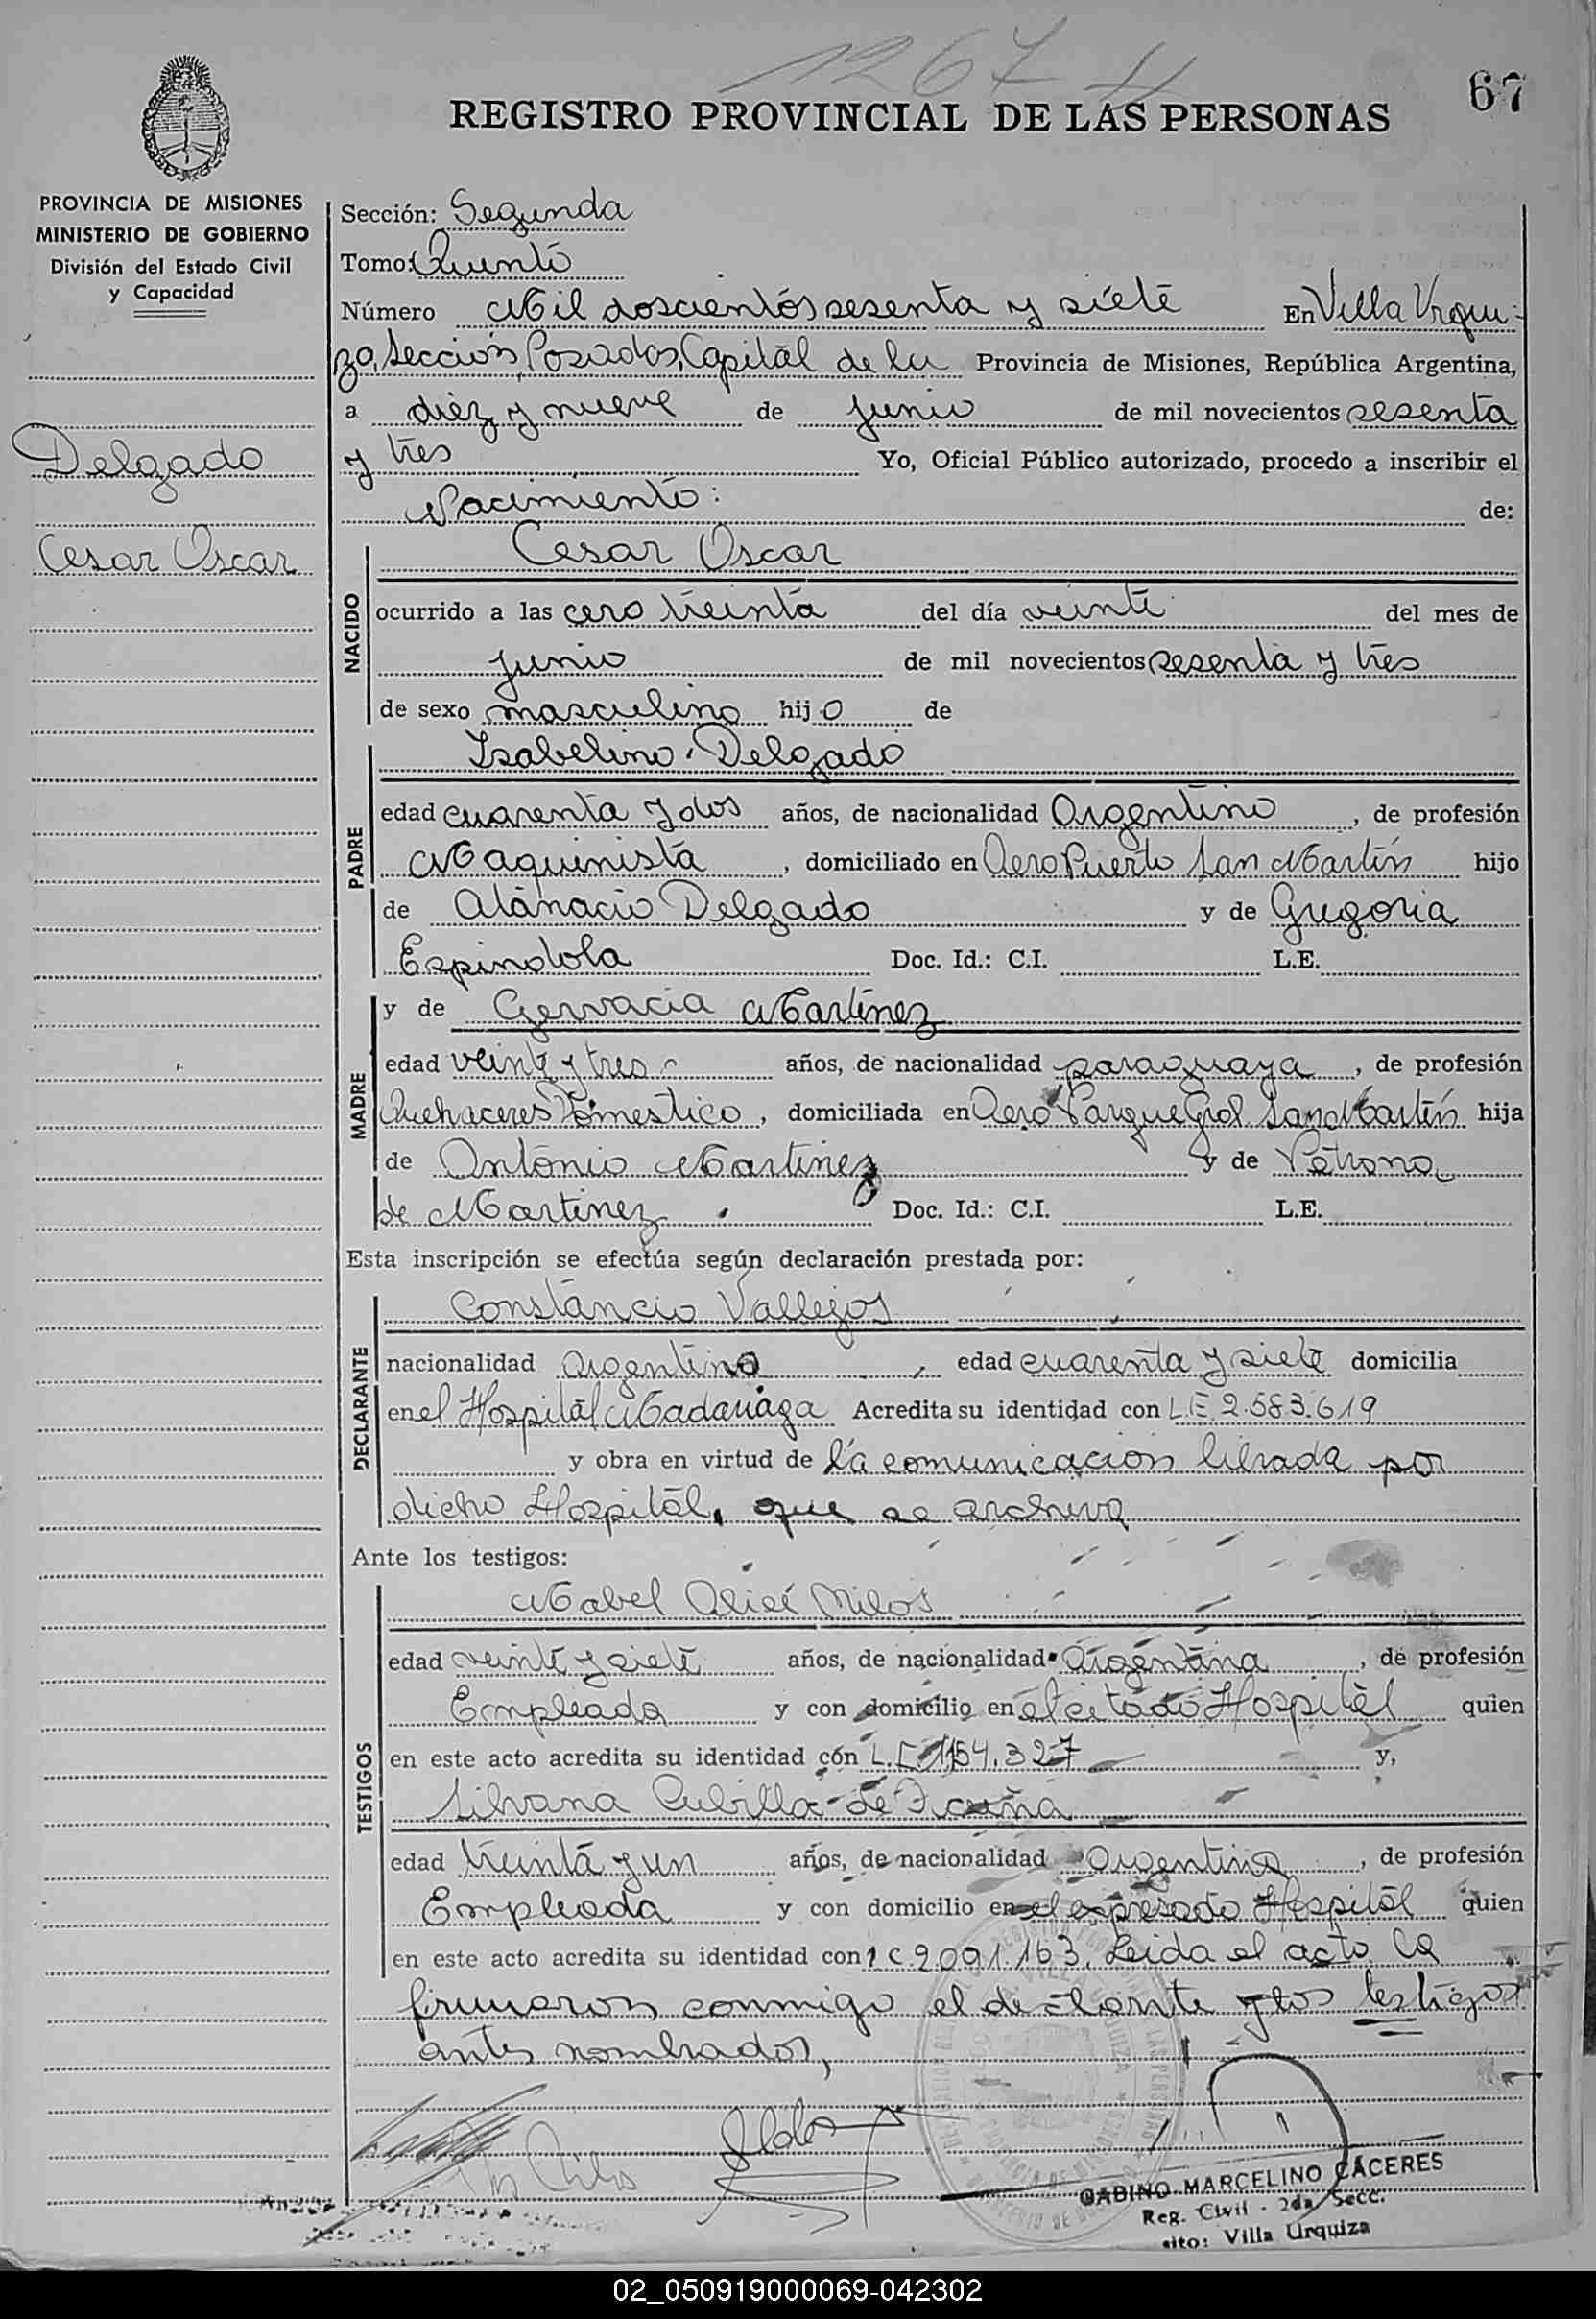 1267
67
REGISTRO PROVINCIAL DE LAS PERSONAS
PROVINCIA DE MISIONES
MINISTERIO DE GOBIERNO
División del Estado Civil
y Capacidad
Delgado
Cesar Oscar
Sección: Segunda
Tomo: Quinto
Número Mil doscientos sesenta y siete En Villa Urqui-
za, Sección Posadas, Capital de la Provincia de Misiones, República Argentina,
a diez y nueve de junio de mil novecientos sesenta
y tres Yo, Oficial Público autorizado, procedo a inscribir el
Nacimiento: de:
NACIDO
Cesar Oscar
ocurrido a las cero treinta del día veinte del mes de
junio de mil novecientos sesenta y tres
de sexo masculino hijo de
PADRE
Isabelino Delgado
edad cuarenta y dos años, de nacionalidad Argentino, de profesión
Maquinista, domiciliado en Aero Puerto San Martín hijo
de Atanacio Delgado y de Gregoria
Espindola Doc. Id.: C.I. L.E.
MADRE
y de Gervacia Martinez
edad veinte y tres años, de nacionalidad paraguaya, de profesión
Quehaceres Domestico, domiciliada en Aero Parque Gral San Martín hija
de Antonio Martinez y de Petrona
de Martinez Doc. Id.: C.I. L.E.
Esta inscripción se efectúa según declaración prestada por:
DECLARANTE
Constancio Vallejos
nacionalidad Argentino, edad cuarenta y siete domicilia
en el Hospital Madariaga Acredita su identidad con L.E. 2.583.619
y obra en virtud de la comunicación librada por
dicho Hospital, que se archiva
Ante los testigos:
TESTIGOS
Mabel
edad veinte y siete años, de nacionalidad Argentina, de profesión
Empleada y con domicilio en el citado Hospital quien
en este acto acredita su identidad con y,
Silvana Cubilla de
edad treinta y un años, de nacionalidad Argentina, de profesión
Empleada y con domicilio en el expresado Hospital quien
en este acto acredita su identidad con 2.091.163. Leida el acto la
firmaron conmigo el de clarante y los testigos
antes nombrados,
GABINO MARCELINO CACERES
Reg. Civil - 2da Secc.
sito: Villa Urquiza
02_050919000069-042302